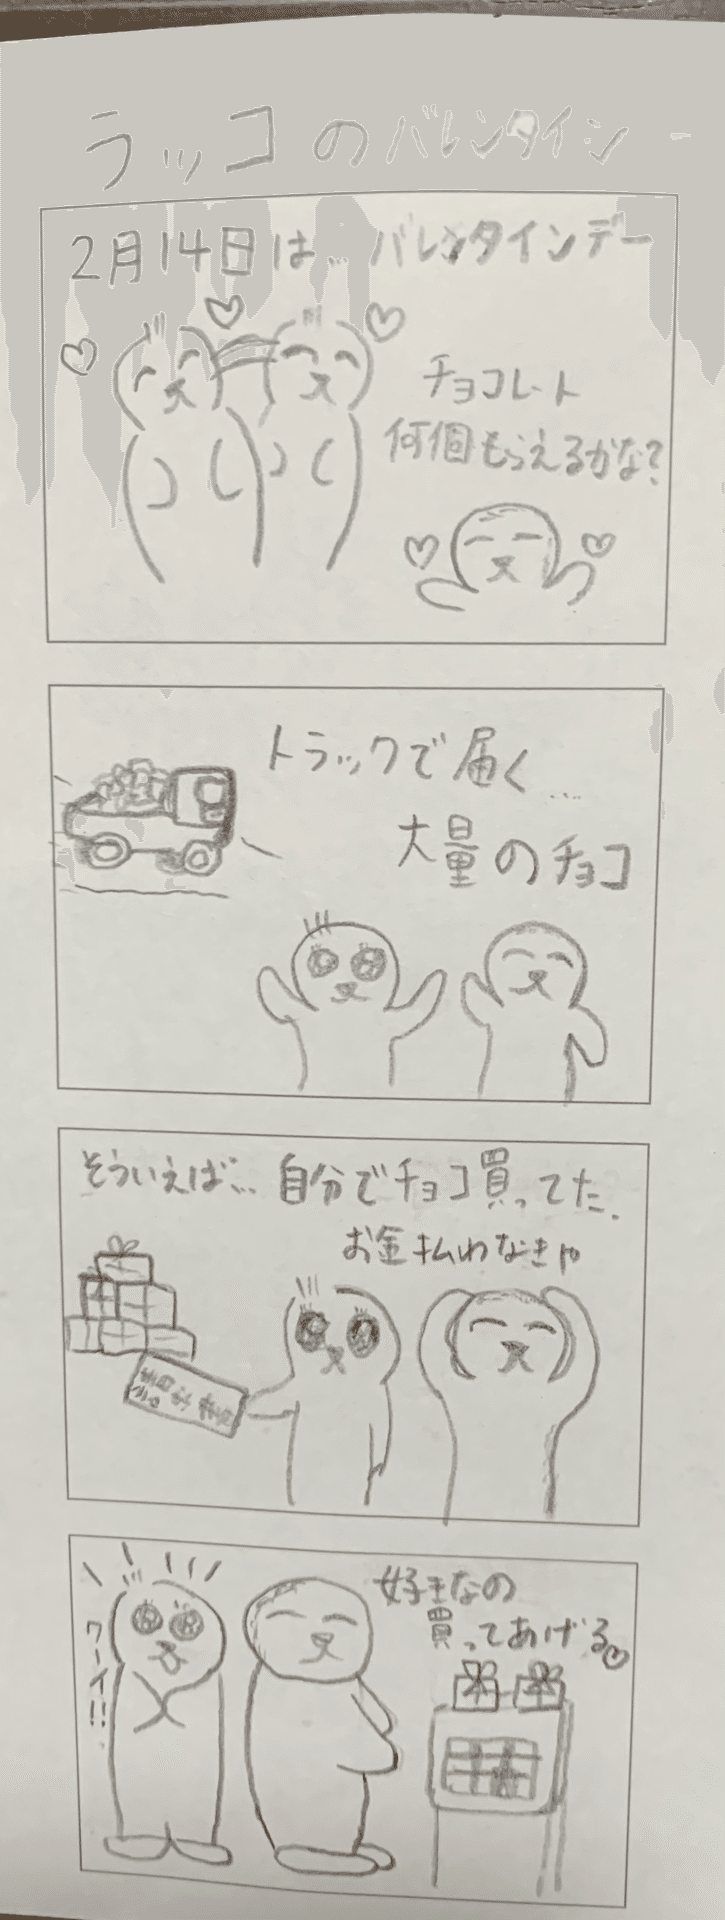 ラッコのバレンタイン
2月14日は… バレンタインデー
チョコレート
何個もらえるかな?
トラックで届く…
大量のチョコ
そういえば… 自分でチョコ買ってた.
お金払わなきゃ
請求書
好きなの
買ってあげる♡
ワーイ!!